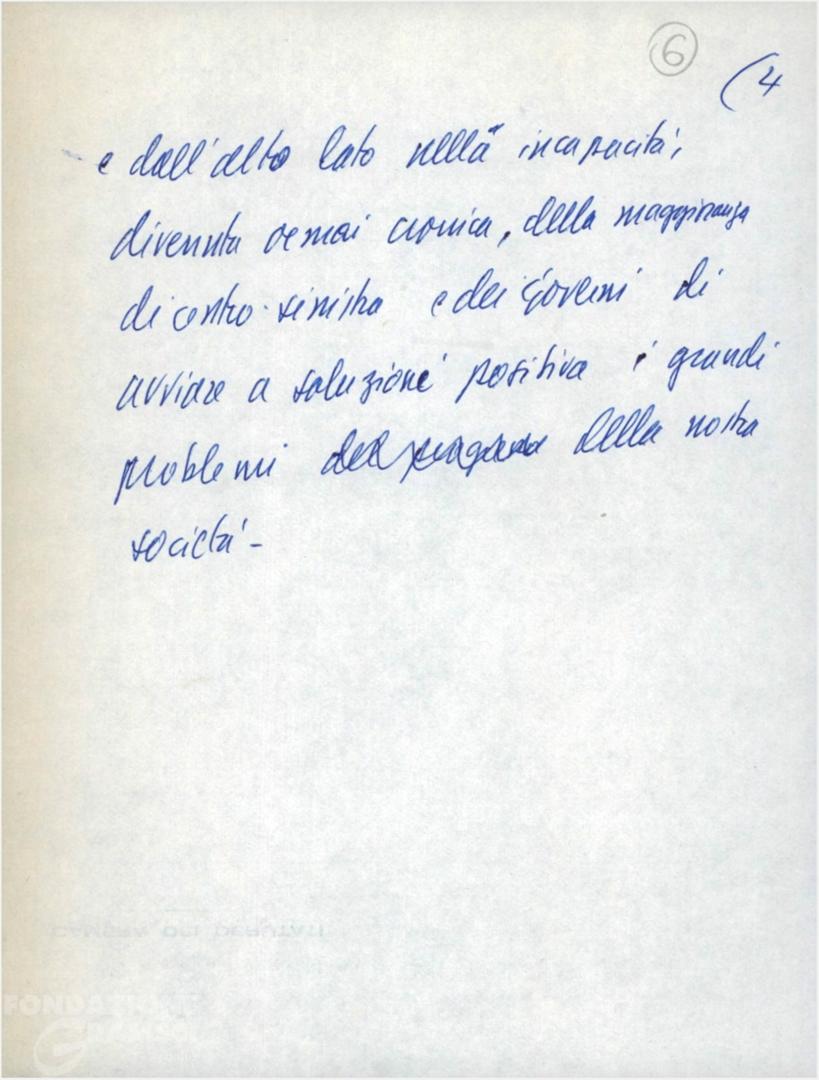 6
(4
e dall'altro lato nella incapacità,
divenuta ormai cronica, della maggioranza
di centro-sinistra e dei Governi di
avviare a soluzione positiva i grandi
problemi del della nostra
società -
CAMERA DEI DEPUTATI
FONDAZIONE
GRAMSCI